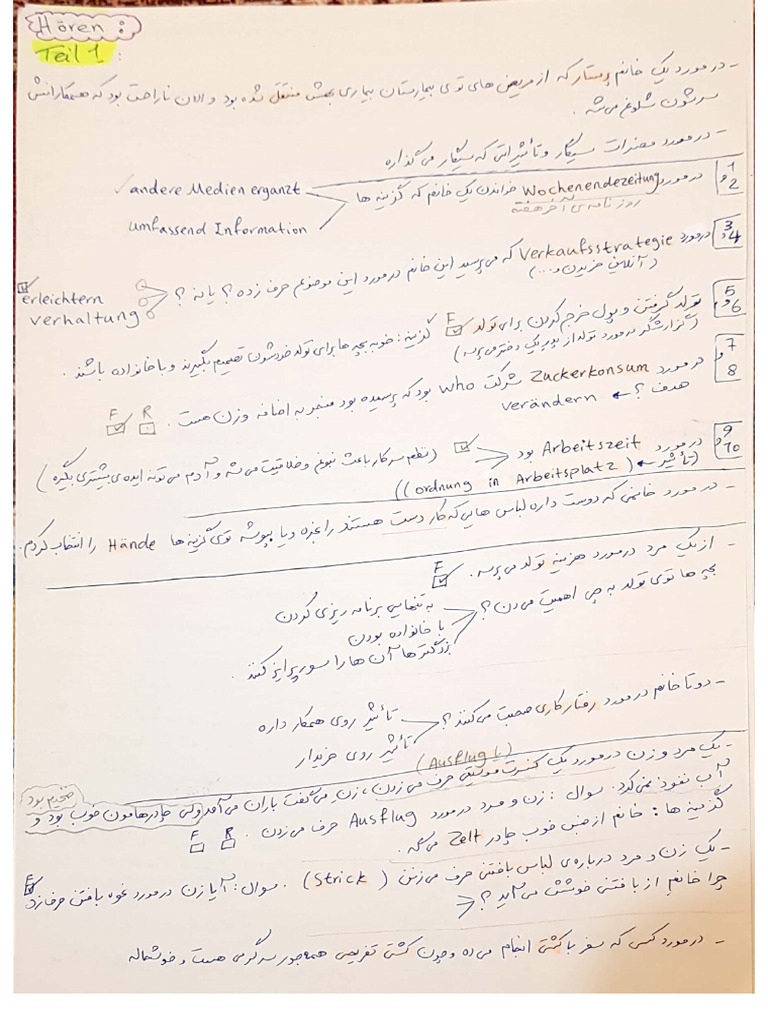 Hören :
Teil 1 :
- در مورد یک خانم پرستار که از مریض های توی بیمارستان بیماری بهش منتقل شده بود و الان ناراحت بود که همکارانش
سرشون شلوغ می شه .
- در مورد مضرات سیگار و تأثیراتی که سیگار می گذاره
1 و 2 در مورد Wochenendezeitung خواندن یک خانم که گزینه ها
روزنامه ی آخر هفته
andere Medien erganzt
umfassend Information
3 و 4 در مورد Verkaufsstrategie که می پرسید این خانم در مورد این موضوع حرف زده ؟ یا نه ؟
(آنلاین خریدن و ...)
erleichtern
verhaltung
5 و 6 تولد گرفتن و پول خرج کردن برای تولد F گزینه : خوبه بچه ها برای تولد خودشون تصمیم بگیرند و با خانواده باشند .
(گزارشگر در مورد تولد از پدر یک دختر می پرسه)
7 و 8 در مورد Zuckerkonsum شرکت who بود که پرسیده بود منجر به اضافه وزن هست . R F
هدف ؟ ← verändern
9 و 10 در مورد Arbeitszeit بود (نظم سر کار باعث نبوغ و خلاقیت می شه و آدم می تونه ایده ی بیشتری بگیره)
(تأثیر ← (ordnung in Arbeitsplatz))
- در مورد خانمی که دوست داره لباس هایی که کار دست هستند را بخره و یا بپوشه توی گزینه ها Hände را انتخاب کردم.
- از یک مرد در مورد هزینه تولد می پرسه . F
بچه ها توی تولد به چی اهمیت می دن ؟
به تنهایی برنامه ریزی کردن
با خانواده بودن
بزرگترها آن ها را سورپرایز کنند .
- دو تا خانم در مورد رفتار کاری صحبت می کنند ؟
تأثیر روی همکار داره
تأثیر روی خریدار
(Ausflug)
- یک مرد و زن در مورد یک کنسرت موسیقی حرف می زدن ، زن می گفت باران می آمد ولی چادرهامون خوب بود و
ضخیم بود
آب نفوذ نمی کرد . سوال : زن و مرد در مورد Ausflug حرف می زدن . R F
گزینه ها : خانم از جنس خوب چادر Zelt می گه .
- یک زن و مرد درباره ی لباس بافتنی حرف می زنن (Strick) . سوال : آیا زن در مورد نحوه بافتن حرف زد F
چرا خانم از بافتنی خوشش می آید ؟
- در مورد کسی که سفر با کشتی انجام می ده و چون کشتی تفریحی همه جور سرگرمی هست و خوشحاله